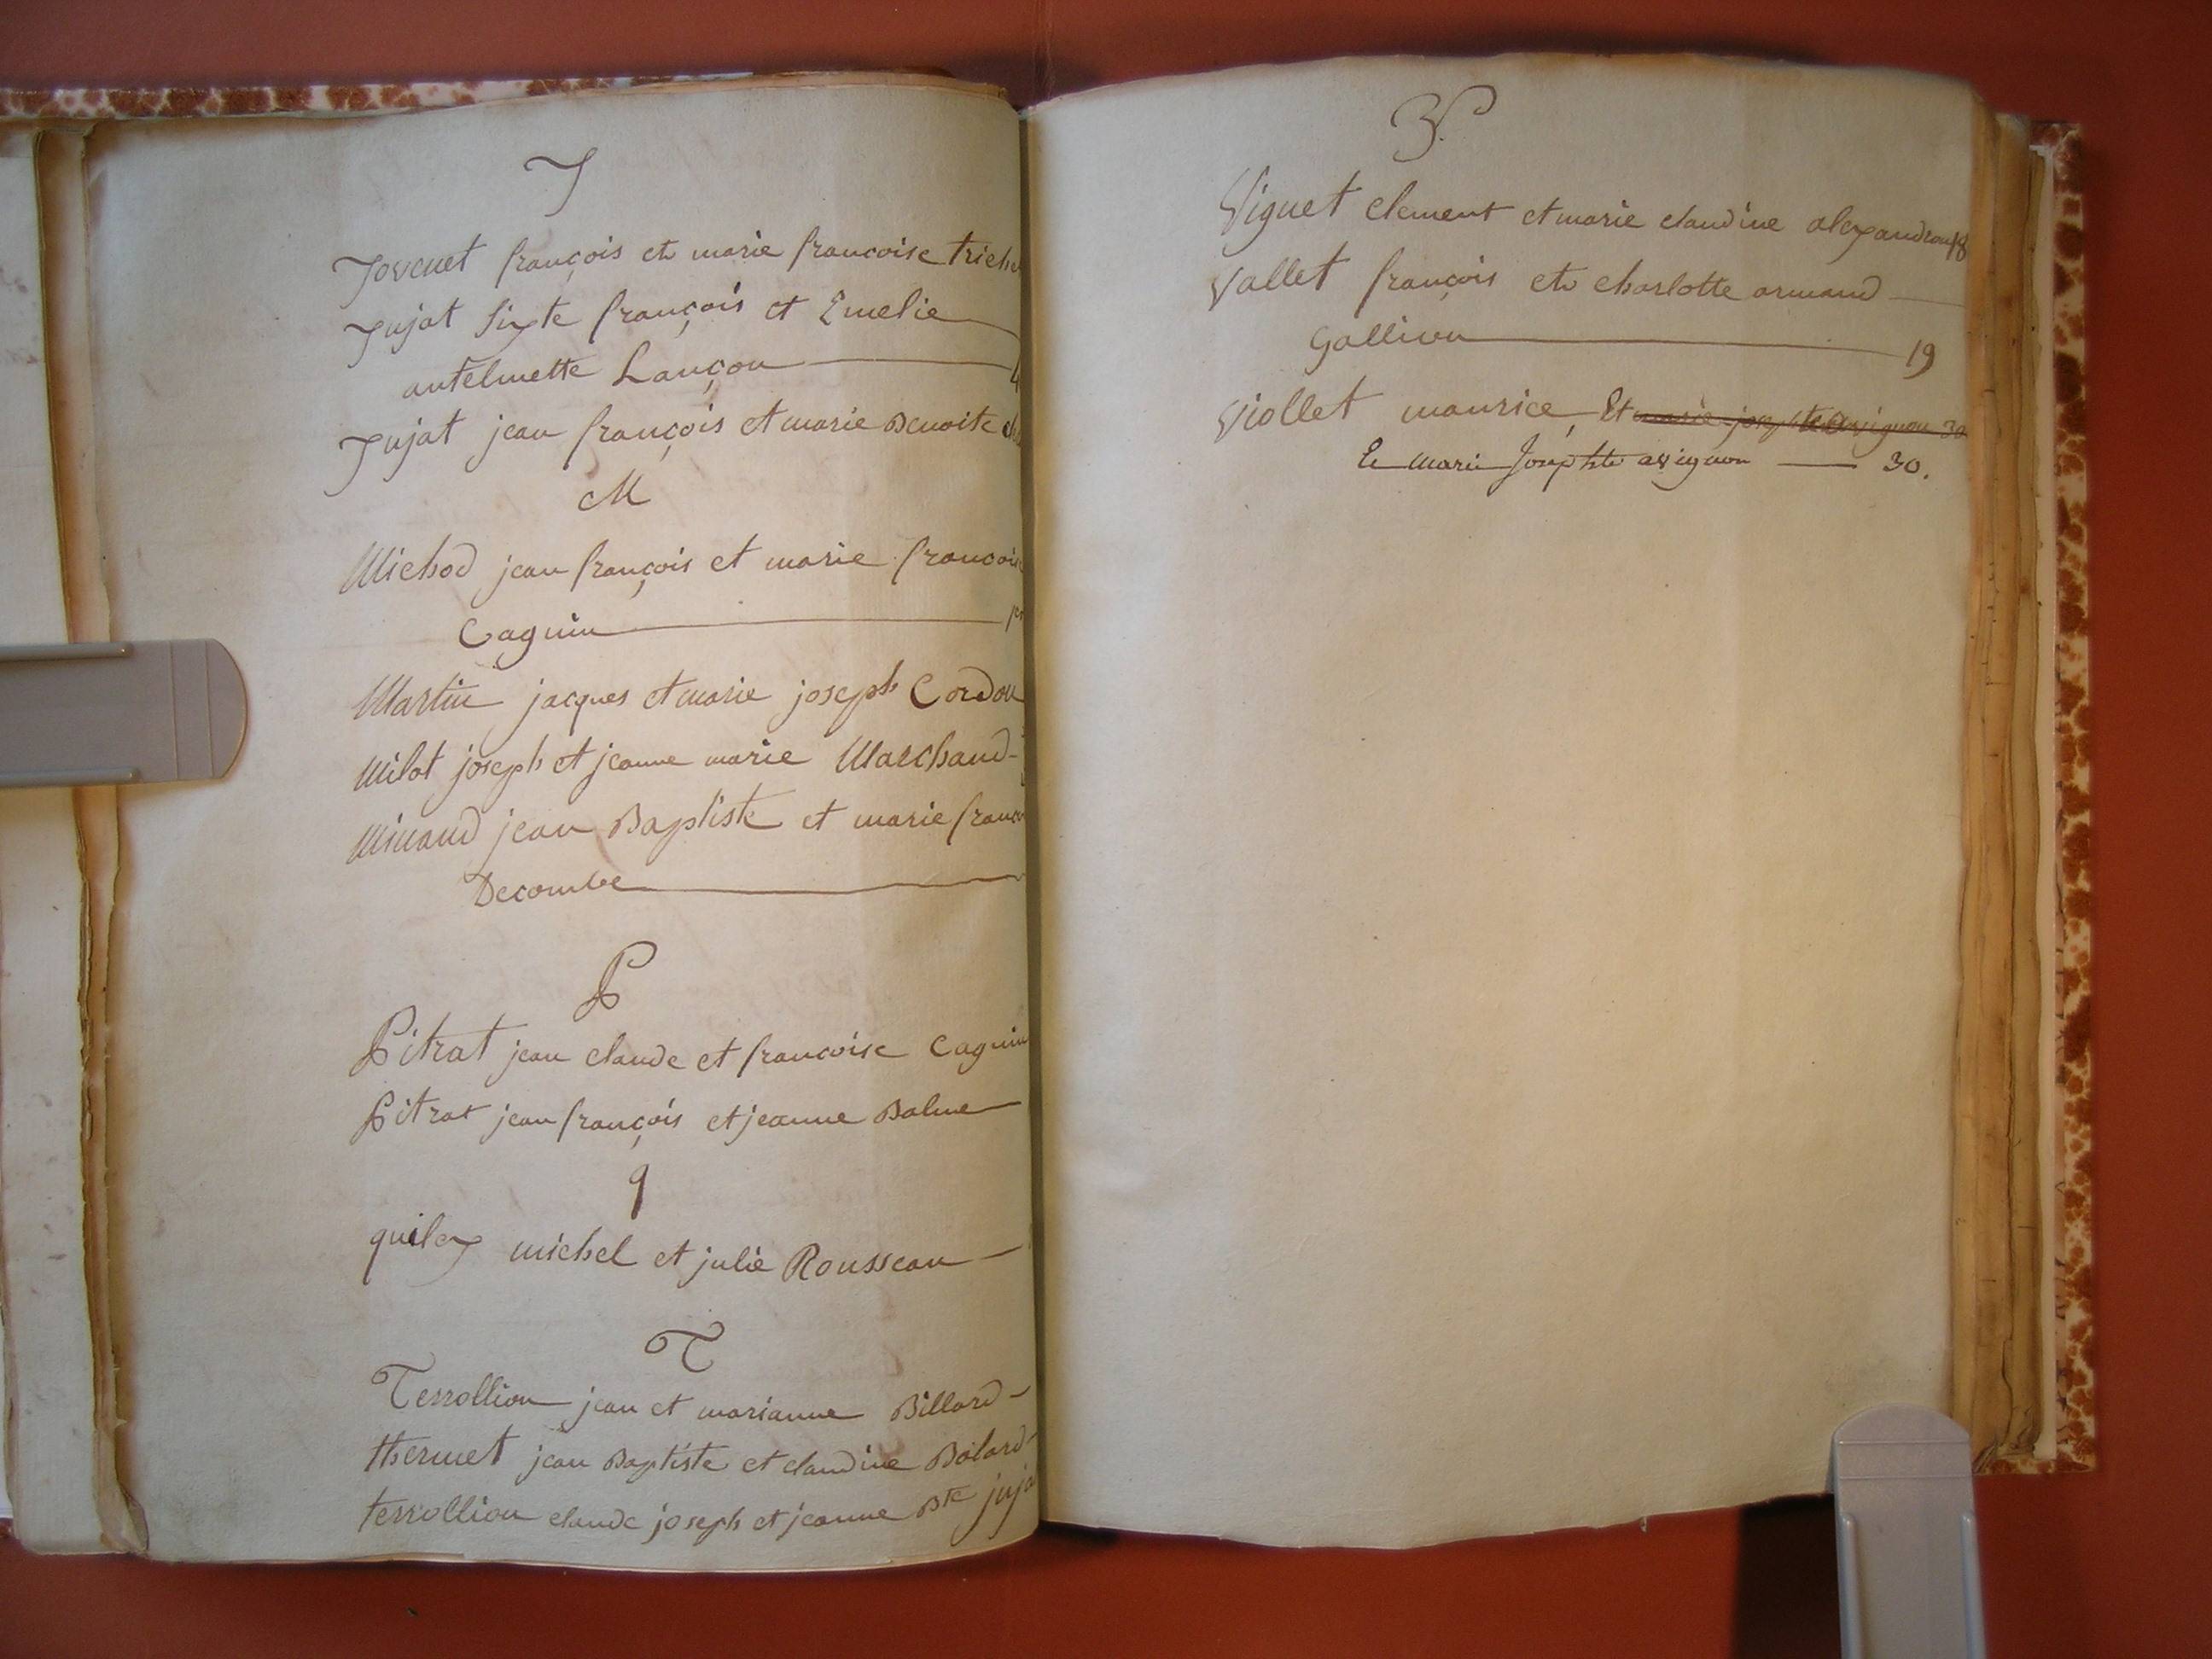 J
Jovenet françois et marie francoise
Jujat Sixte françois et Emelie
antelmette Lançon
Jujat jean françois et marie Benoite
M
Michod jean françois et marie francoise
Caguin
Martin jacques et marie joseph Cordon
Milot joseph et jeanne marie Marchand
Minand jean Baptiste et marie
Decombe
P
Pitrat jean claude et francoise Caguin
Pitrat jean françois et jeanne Balme
q
quilex michel et julie Rousseau
T
Terrollion jean et marianne Billard
thermet jean Baptiste et claudine Balard
terrollion claude joseph et jeanne Bte
V
Viguet clement et marie claudine 18
Vallet françois et charlotte armand
Gallion 19
Viollet maurice, Et marie josephte avignon 30
Et Marie Josephte avignon 30.